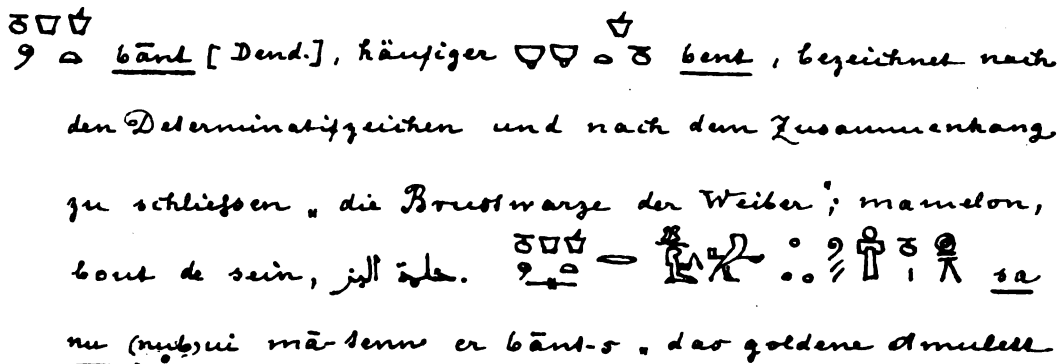 bānt [Dend.], häufiger bent, bezeichnet nach
den Determinatifzeichen und nach dem Zusammenhang
zu schliefsen „die Brustwarze der Weiber"; mamelon,
bout de sein, حلمة البز. sa
nu (nub)ui mā-sennu er bānt-s „das goldene Amulett